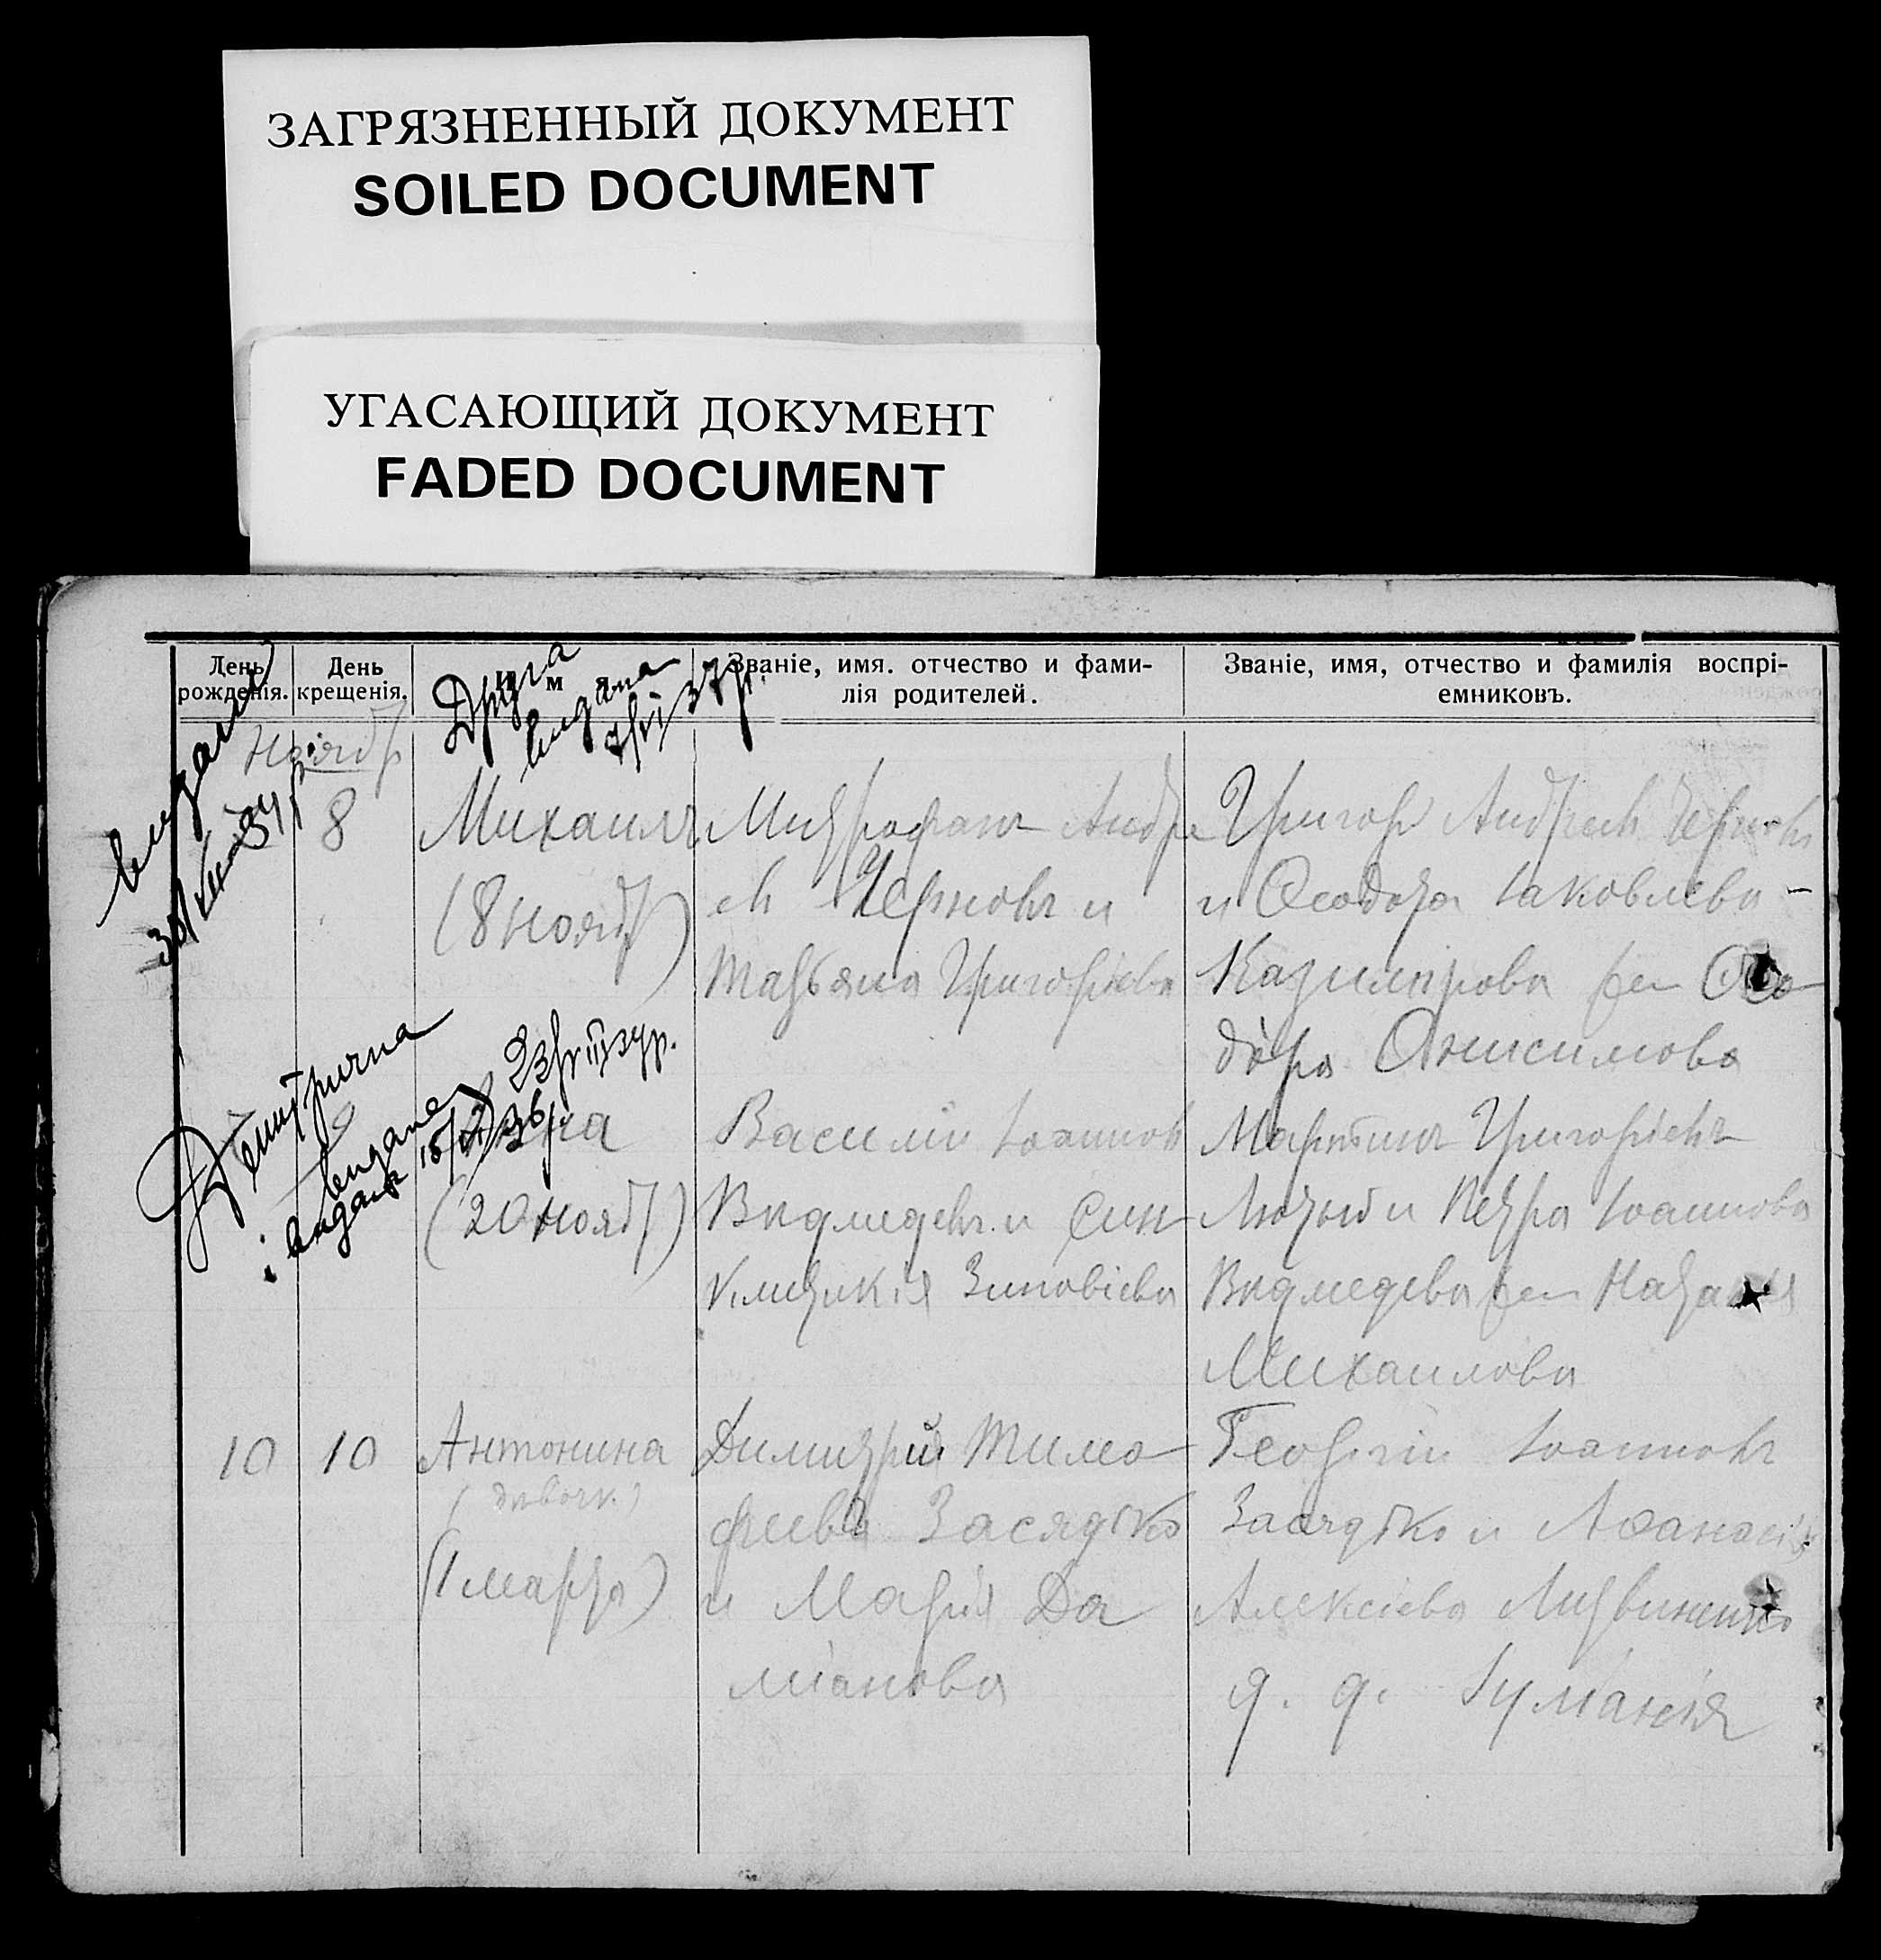 ЗАГРЯЗНЕННЫЙ ДОКУМЕНТ
SOILED DOCUMENT
УГАСАЮЩИЙ ДОКУМЕНТ
FADED DOCUMENT
День рожденія.
День крещенія.
Имя
Званіе, имя. отчество и фами-
лія родителей.
Званіе, имя, отчество и фамилія воспрі-
емниковъ.
Друга
видана
видана
Ноябр
8
Михаилъ
(8 нояб)
Митрофанъ Андре
евъ Черновъ и
Татьяна Григоріева
Григор Андреевъ Черновъ
и Ѳеодора Іаковлева
Казимірова Ѳео
дора Онисимова
видана
(20 нояб)
Василій Іоаннов
Видмедевъ и Син
клитикія Зиновіева
Мартинъ Григоріевъ
и Петра Іоаннова
Видмедева
Михаилова
10
10
Антонина
(1 марта)
Димитрій Тимо
феевъ Засядько
и Марія Да
міанова
Георгій Іоанновъ
Засядько и Аѳанасія
Алексіева Литвиненко